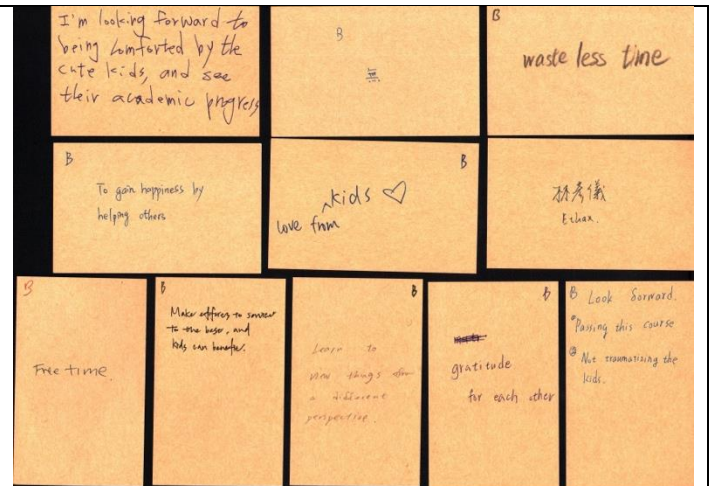 I'm looking forward to
being comforted by the
cute kids, and see
their academic progress
B
無
B
waste less time
B
To gain happiness by
helping others
B
kids ♡
love from
林彥儀
Ethan.
B
Free time.
B
Make efforts to
to the best, and
kids can benefit.
B
Learn to
view things
a different
perspective.
B
gratitude
for each other
B Look forward.
① Passing this course
② Not traumatizing the
kids.